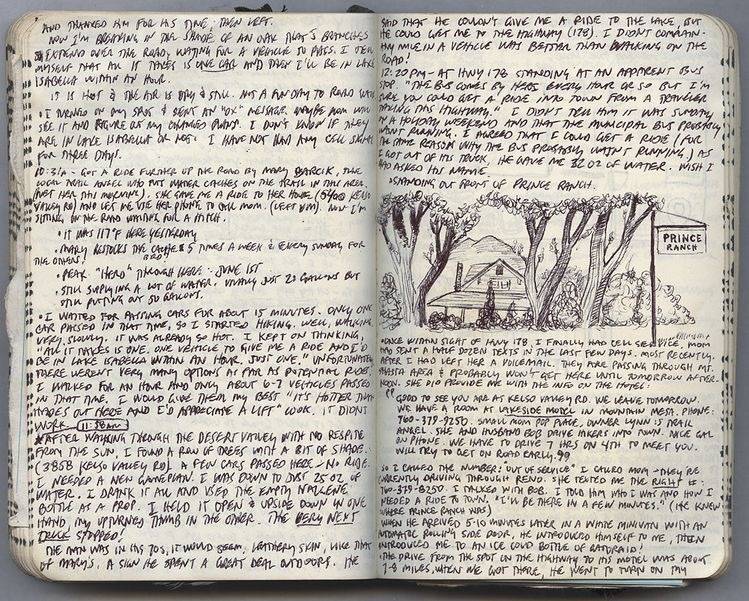 AND THANKED HIM FOR HIS TIME, THEN LEFT.
NOW I'M BREAKING IN THE SHADE OF AN OAK THAT'S BRANCHES
EXTEND OVER THE ROAD, WAITING FOR A VEHICLE TO PASS. I TELL
MYSELF THAT ALL IT TAKES IS ONE CAR AND THEN I'LL BE IN LAKE
ISABELLA WITHIN AN HOUR.
IT IS HOT & THE AIR IS DRY & STILL. NOT A FUN DAY TO ROAD WALK
• I TURNED ON MY SPOT & SENT AN "OK" MESSAGE. MAYBE MOM WILL
SEE IT AND FIGURE OUT MY CHANGED PLANS. I DON'T KNOW IF THEY
ARE IN LAKE ISABELLA OR NOT. I HAVE NOT HAD ANY CELL SIGNAL
FOR THREE DAYS.
GOT A RIDE FURTHER UP THE ROAD BY MARY BARCIK, THE
LOCAL TRAIL ANGEL WHO PUT WATER CACHES ON THE TRAIL IN THIS AREA.
(MET HER THIS MORNING). SHE GAVE ME A RIDE TO HER HOUSE ( KELSO
VALLEY RD) AND LET ME USE HER PHONE TO CALL MOM. (LEFT VM). NOW I'M
SITTING ON THE ROAD WAITING FOR A HITCH.
• IT WAS 117°F HERE YESTERDAY
• MARY RESTOCKS THE CACHE 5 TIMES A WEEK & EVERY SUNDAY FOR
THE OTHERS!
• PEAK "HERD" THROUGH HERE: JUNE 1ST
• STILL SUPPLYING A LOT OF WATER. USUALLY JUST 20 GALLONS BUT
STILL PUTTING OUT 50 GALLONS.
• I WAITED FOR PASSING CARS FOR ABOUT 15 MINUTES. ONLY ONE
CAR PASSED IN THAT TIME, SO I STARTED HIKING. WELL, WALKING
VERY SLOWLY. IT WAS ALREADY SO HOT. I KEPT ON THINKING,
"ALL IT TAKES IS ONE. ONE VEHICLE TO GIVE ME A RIDE AND I'D
BE IN LAKE ISABELLA WITHIN AN HOUR. JUST ONE." UNFORTUNATELY
THERE WEREN'T VERY MANY OPTIONS AS FAR AS POTENTIAL RIDES.
I WALKED FOR AN HOUR AND ONLY ABOUT 6-7 VEHICLES PASSED
IN THAT TIME. I WOULD GIVE THEM MY BEST "IT'S HOTTER THAN
HADES OUT HERE AND I'D APPRECIATE A LIFT" LOOK. IT DIDN'T
WORK. 11:58AM
*AFTER WALKING THROUGH THE DESERT VALLEY WITH NO RESPITE
FROM THE SUN, I FOUND A ROW OF TREES WITH A BIT OF SHADE.
(3858 KELSO VALLEY RD) A FEW CARS PASSED HERE - NO RIDE.
I NEEDED A NEW GAMEPLAN. I WAS DOWN TO JUST 25 OZ OF
WATER. I DRANK IT ALL AND USED THE EMPTY NALGENE
BOTTLE AS A PROP. I HELD IT OPEN & UPSIDE DOWN IN ONE
HAND, MY UPTURNED THUMB IN THE OTHER. THE VERY NEXT
TRUCK STOPPED!
THE MAN WAS IN HIS 70S, IT WOULD SEEM. LEATHERY SKIN, LIKE THAT
OF MARY'S. A SIGN HE SPENT A GREAT DEAL OUTDOORS. HE
SAID THAT HE COULDN'T GIVE ME A RIDE TO THE LAKE, BUT
HE COULD GET ME TO THE HIGHWAY (178). I DIDN'T COMPLAIN -
ANY MILE IN A VEHICLE WAS BETTER THAN WALKING ON THE
ROAD!
12:20PM - AT HWY 178 STANDING AT AN APPARENT BUS
STOP. "THE BUS COMES BY HERE EVERY HOUR OR SO BUT I'M
SURE YOU COULD GET A RIDE INTO TOWN FROM A TRAVELER
TAKING THIS HIGHWAY." I DIDN'T TELL HIM IT WAS SUNDAY
ON A HOLIDAY WEEKEND AND THAT THE MUNICIPAL BUS PROBABLY
WASN'T RUNNING. I AGREED THAT I COULD GET A RIDE (FOR
THE SAME REASON WHY THE BUS PROBABLY WASN'T RUNNING) AS
I GOT OUT OF HIS TRUCK. HE GAVE ME 32 OZ OF WATER. WISH I
HAD ASKED HIS NAME.
• STANDING OUT FRONT OF PRINCE RANCH.
PRINCE
RANCH
• ONCE WITHIN SIGHT OF HWY 178, I FINALLY HAD CELL SERVICE. MOM
HAD SENT A HALF DOZEN TEXTS IN THE LAST FEW DAYS. MOST RECENTLY,
AFTER I HAD LEFT HER A VOICEMAIL. THEY ARE PASSING THROUGH MT.
SHASTA AREA & PROBABLY WON'T GET HERE UNTIL TOMORROW AFTER-
NOON. SHE DID PROVIDE ME WITH THE INFO ON THE HOTEL:
"GOOD TO SEE YOU ARE AT KELSO VALLEY RD. WE LEAVE TOMORROW.
WE HAVE A ROOM AT LAKESIDE MOTEL IN MOUNTAIN MESA. PHONE:
760-379-9250. SMALL MOM POP PLACE, OWNER LYNN IS TRAIL
ANGEL. SHE AND HUSBAND BOB DRIVE HIKERS INTO TOWN. NICE GAL
ON PHONE. WE HAVE TO DRIVE 7 HRS ON 4TH TO MEET YOU.
WILL TRY TO GET ON ROAD EARLY."
SO I CALLED THE NUMBER: "OUT OF SERVICE" I CALLED MOM - THEY'RE
CURRENTLY DRIVING THROUGH RENO. SHE TEXTED ME THE RIGHT #:
760-379-8257. I TALKED WITH BOB. I TOLD HIM WHO I WAS AND HOW I
NEEDED A RIDE TO TOWN. "I'LL BE THERE IN A FEW MINUTES." (HE KNEW
WHERE PRINCE RANCH WAS)
WHEN HE ARRIVED 5-10 MINUTES LATER IN A WHITE MINIVAN WITH AN
AUTOMATIC ROLLING SIDE DOOR, HE INTRODUCED HIMSELF TO ME, THEN
INTRODUCED ME TO AN ICE COLD BOTTLE OF GATORAID!
• THE DRIVE FROM THE SPOT ON THE HIGHWAY TO HIS MOTEL WAS ABOUT
7-8 MILES. WHEN WE GOT THERE, HE WENT TO TURN ON MY